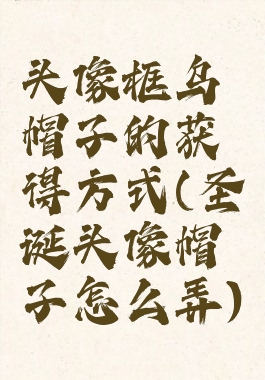 头像框乌
帽子的获
得方式(圣
诞头像帽
子怎么弄)